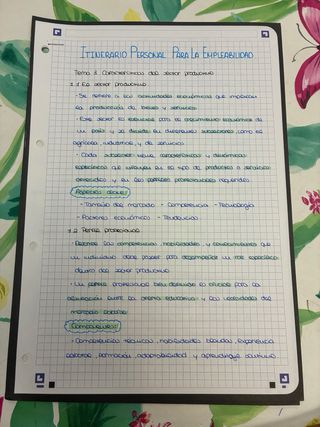 ITINERARIO PERSONAL PARA LA EMPLEABILIDAD
Tema 1 Características del sector productivo
1.1 El sector productivo
- Se refiere a las actividades económicas que implican
la producción de bienes y servicios.
- Este sector es esencial para el crecimiento económico de
un país y se divide en diferentes subsectores como el
agrícola, industrial y de servicios.
- Cada subsector tiene características y dinámicas
específicas que influyen en el tipo de productos o servicios
ofrecidos y en los perfiles profesionales requeridos
Aspectos claves:
- Tamaño del mercado - Competencia - Tecnología
- Factores económicos - Tendencias
1.2 Perfil profesional
- Describe las competencias, habilidades y conocimientos que
un individuo debe poseer para desempeñar un rol específico
dentro del sector productivo
- Un perfil profesional bien definido es crucial para la
alineación entre la oferta educativa y las necesidades del
mercado laboral
Componentes:
- Competencias técnicas, habilidades blandas, experiencia
laboral, formación, adaptabilidad y aprendizaje continuo